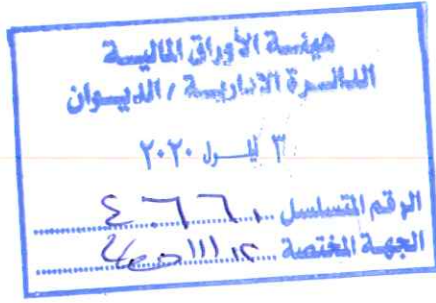 هيئة الأوراق المالية
الدائرة الادارية / الديوان
٣ ايلول ٢٠٢٠
الرقم المتسلسل
الجهة المختصة